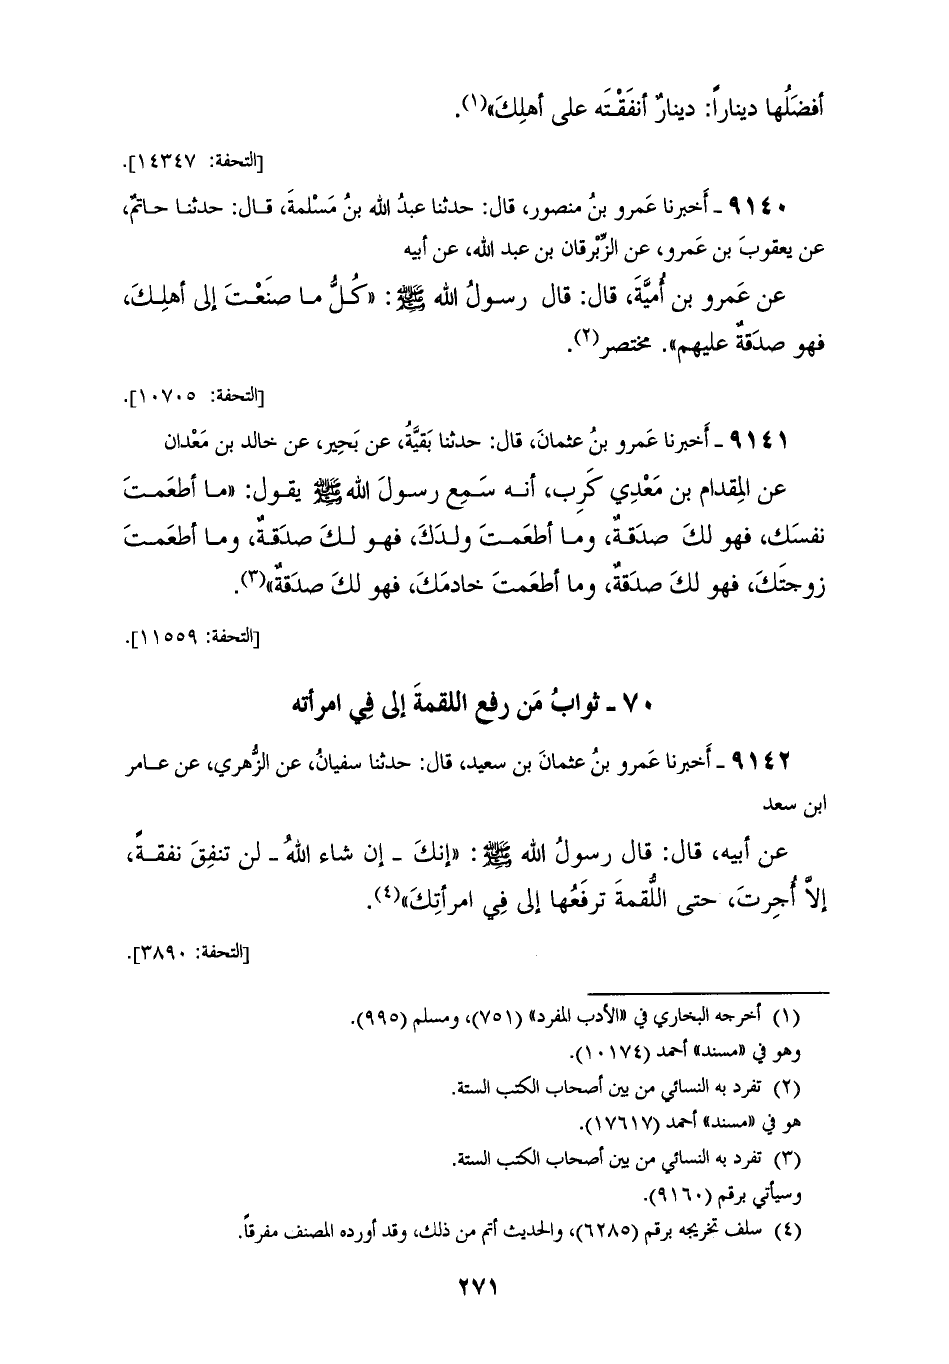 أفضَلُها ديناراً: دينارٌ أنفَقْتَه على أهلِكَ»(١).
[التحفة: ١٤٣٤٧].
٩١٤٠ ـ أَخبرنا عَمرو بنُ منصور، قال: حدثنا عبدُ الله بنُ مَسْلمةَ، قال: حدثنا حاتمٌ،
عن يعقوبَ بن عَمرو، عن الزِّبْرِقان بن عبد الله، عن أبيه
عن عَمرو بن أُميَّةَ، قال: قال رسولُ الله ﷺ: «كُلُّ ما صنَعْتَ إلى أهلِكَ،
فهو صدَقةٌ عليهم». مختصر(٢).
[التحفة: ١٠٧٠٥].
٩١٤١ ـ أَخبرنا عَمرو بنُ عثمانَ، قال: حدثنا بَقيَّةُ، عن بَحِير، عن خالد بن مَعْدان
عن المِقدام بن مَعْدِي كَرِب، أنه سَمِع رسولَ الله ﷺ يقول: «ما أطعَمتَ
نفسَك، فهو لكَ صدَقةٌ، وما أطعَمتَ ولدَكَ، فهو لكَ صدَقةٌ، وما أطعَمتَ
زوجتَكَ، فهو لكَ صدَقةٌ، وما أطعَمتَ خادمَكَ، فهو لكَ صدَقةٌ»(٣).
[التحفة: ١١٥٥٩].
٧٠ ـ ثوابُ مَن رفع اللقمةَ إلى فِي امرأته
٩١٤٢ ـ أَخبرنا عَمرو بنُ عثمانَ بن سعيد، قال: حدثنا سفيانُ، عن الزُّهري، عن عامر
ابن سعد
عن أبيه، قال: قال رسولُ الله ﷺ: «إنكَ ـ إن شاء اللهُ ـ لن تنفِقَ نفقةً،
إلاَّ أُجِرتَ، حتى اللُّقمةَ ترفَعُها إلى فِي امرأتِكَ»(٤).
[التحفة: ٣٨٩٠].
(١) أخرجه البخاري في «الأدب المفرد» (٧٥١)، ومسلم (٩٩٥).
وهو في «مسند» أحمد (١٠١٧٤).
(٢) تفرد به النسائي من بين أصحاب الكتب الستة.
هو في «مسند» أحمد (١٧٦١٧).
(٣) تفرد به النسائي من بين أصحاب الكتب الستة.
وسيأتي برقم (٩١٦٠).
(٤) سلف تخريجه برقم (٦٢٨٥)، والحديث أتم من ذلك، وقد أورده المصنف مفرقاً.
٢٧١